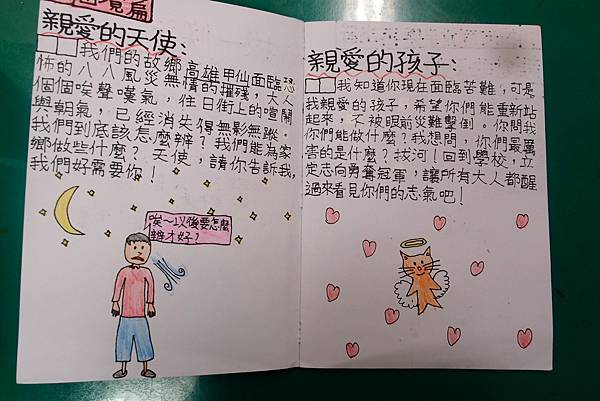 困境篇
親愛的天使：
我們的故鄉高雄甲仙面臨恐
怖的八八風災無情的摧殘，大人
個個唉聲嘆氣，往日街上的喧鬧
與朝氣，已經消失得無影無蹤．
我們到底該怎麼辦？我們能為家
鄉做些什麼？天使，請你告訴我，
我們好需要你！
唉～以後要怎麼
辦才好？
親愛的孩子：
我知道你現在面臨苦難，可是
我親愛的孩子，希望你們能重新站
起來，不被眼前災難擊倒。你問我
你們能做什麼？我想問，你們最厲
害的是什麼？拔河！回到學校，立
定志向勇奪冠軍，讓所有大人都醒
過來看見你們的志氣吧！